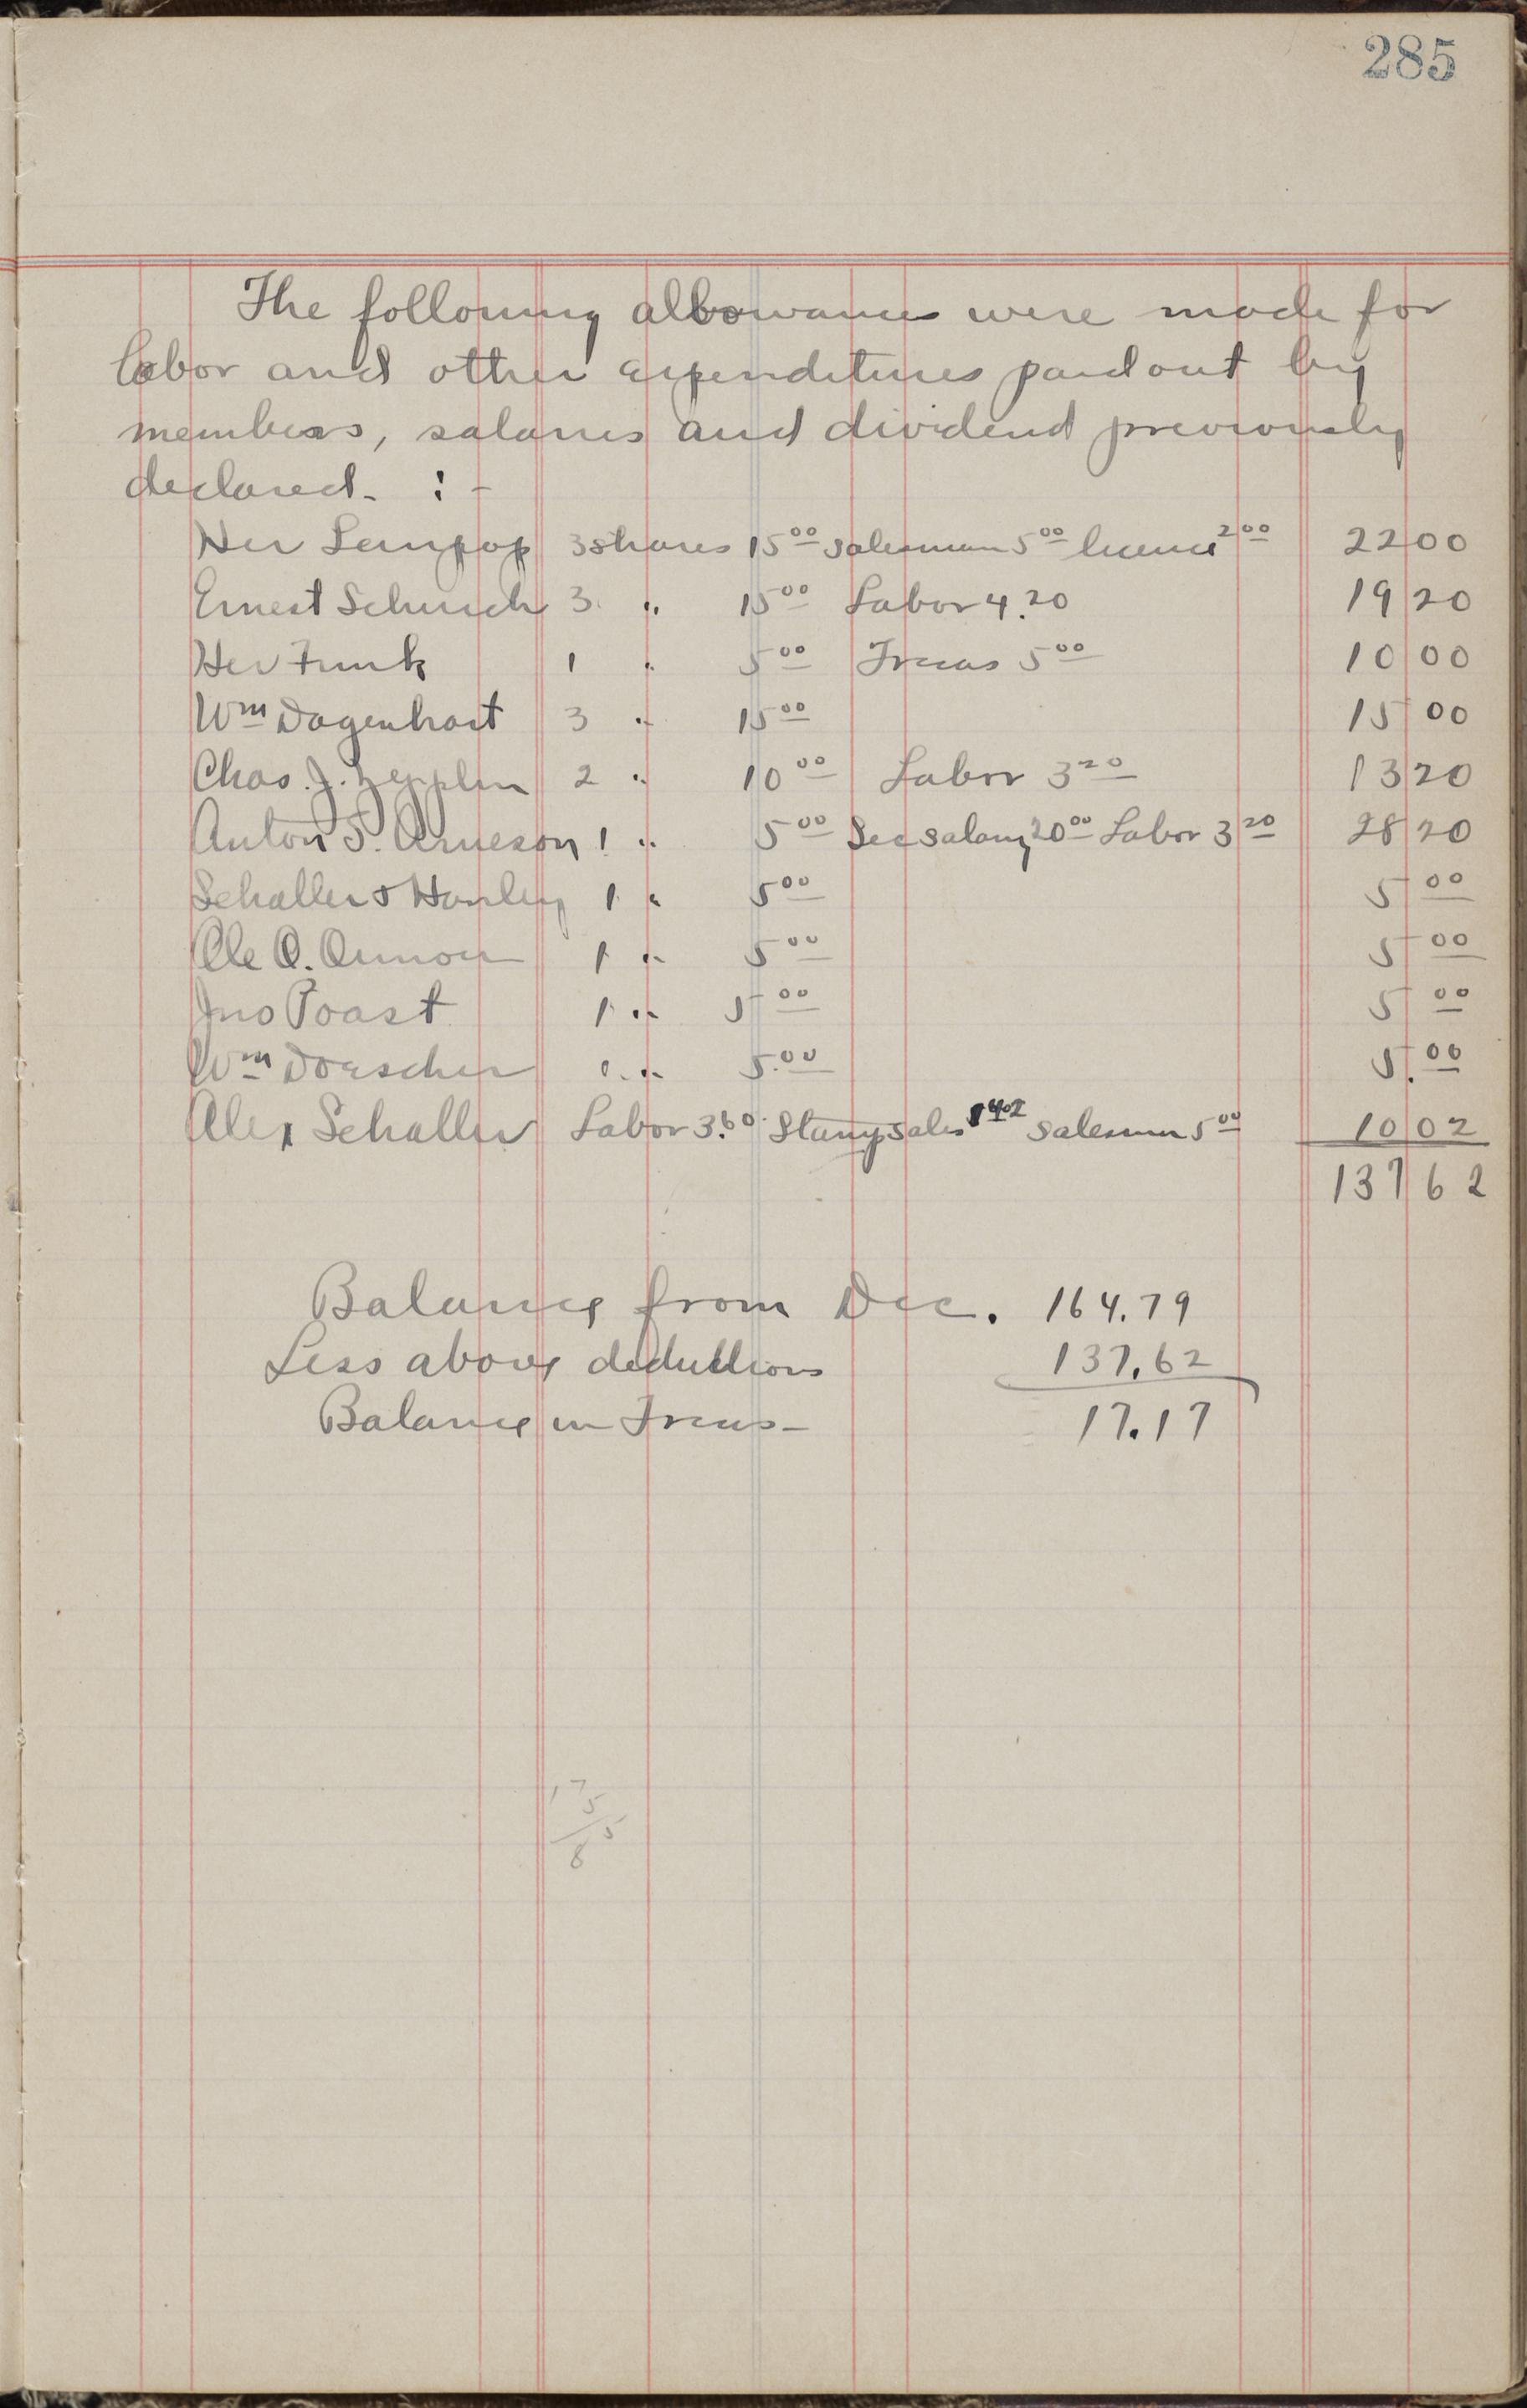 285
The following allowances were made for
labor and other expenditures paid out by
members, salaries and dividend previously
declared. :-
Her Lempop 3 shares 15 00 salesman 5 00 license 2 00 22 00
Ernest Schusch 3 " 15 00 Labor 4.20 19 20
Her Funk 1 " 5 00 Treas 5 00 10 00
Wm Dagenhart 3 " 15 00 15 00
Chas. J. Zepplin 2 " 10 00 Labor 3 20 13 20
Anton T. Arneson 1 " 5 00 Sec salary 20 00 Labor 3 20 28 20
Schaller & Hanley 1 " 5 00 5 00
Ole O. 1 " 5 00 5 00
Jno Poast 1 " 5 00 5 00
Wm Doescher " 5.00 5.00
Alex Schaller Labor 3.60 Stamp sales salesman 5 00 10 02
137 62
Balance from Dec. 164.79
Less above deductions 137.62
Balance in Treas- 17.17
17
5
85